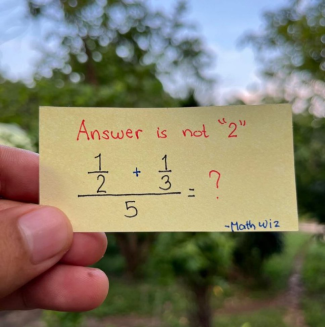 Answer is not "2"
1/2 + 1/3
5 = ?
-Math Wiz